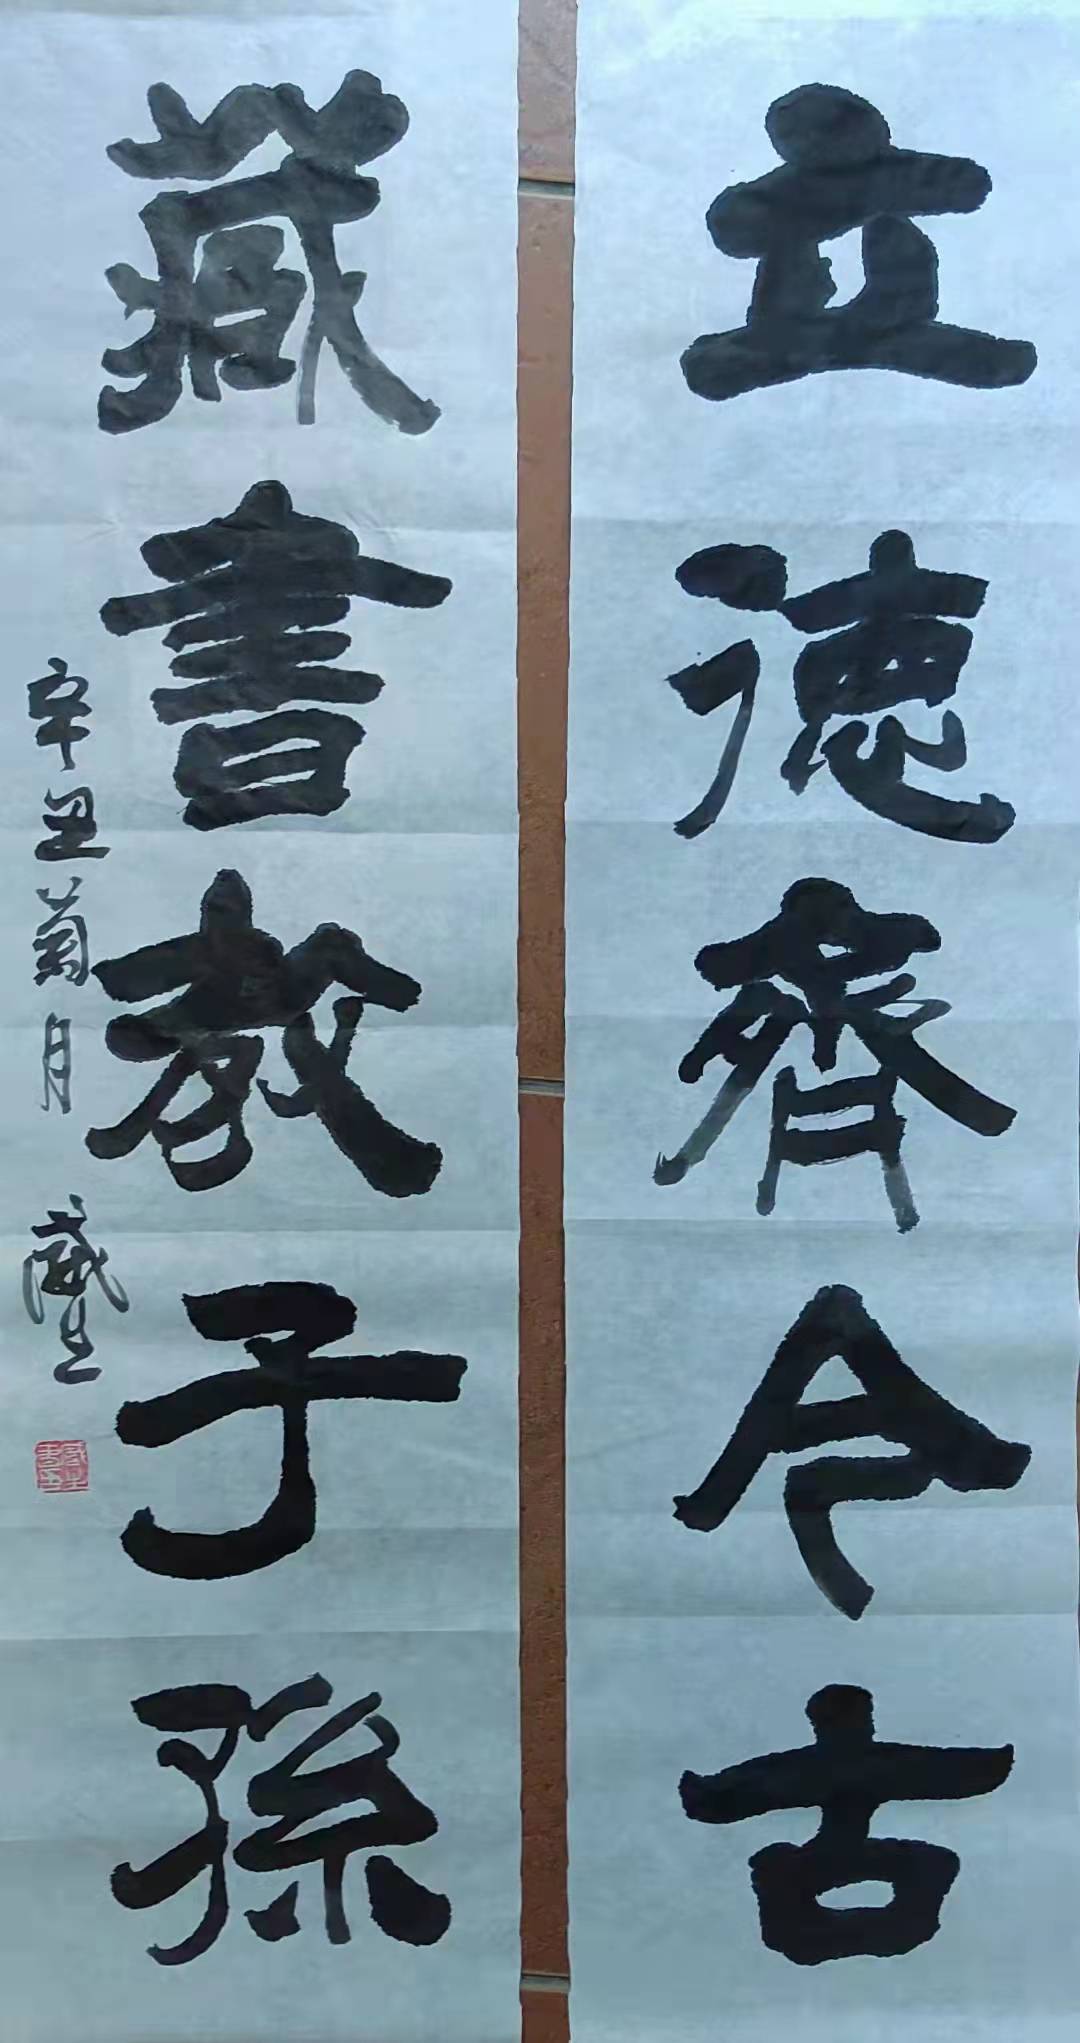 立德齊今古
藏書教子孫
辛丑菊月